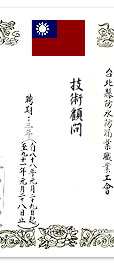 台北縣防水防漏業職業工會
技術顧問
聘期：三年（八十八年元月二十九日起
至九十一年元月二十八日止）